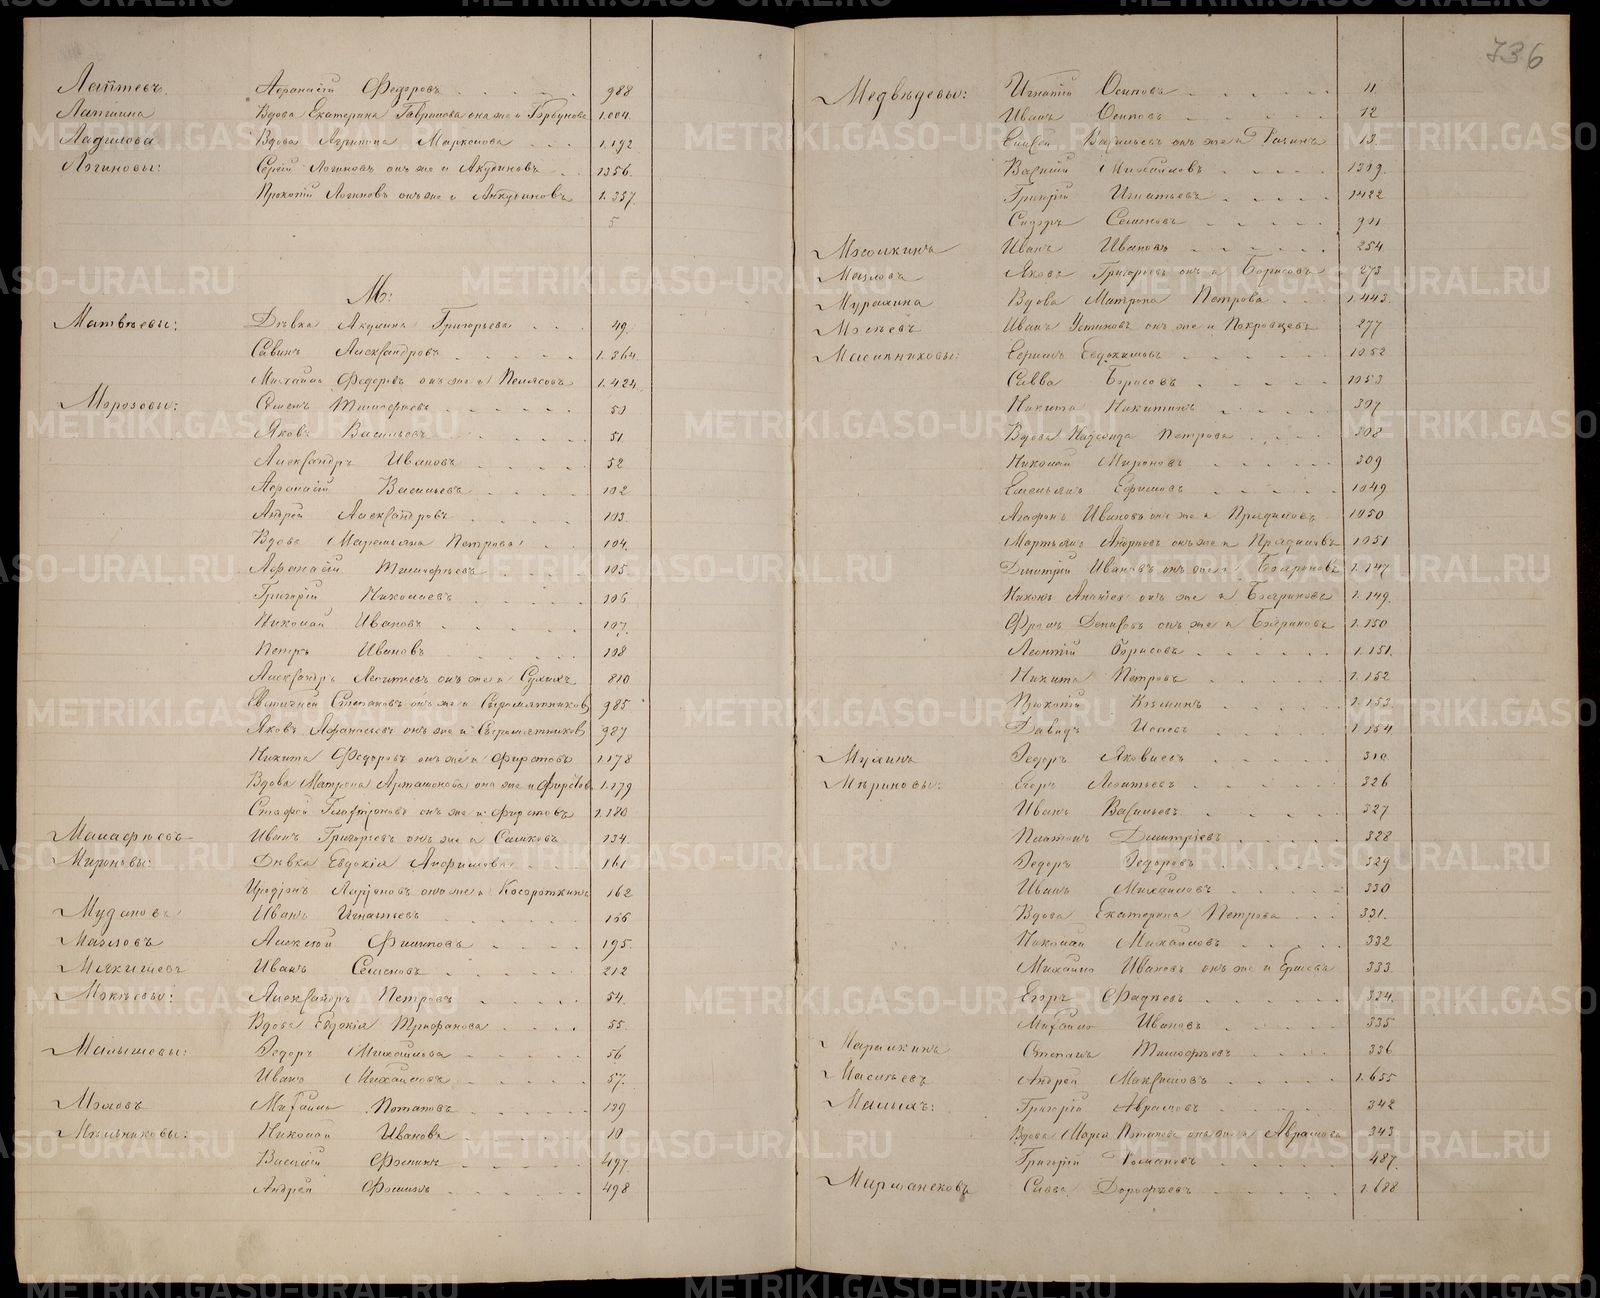 Лаптевъ Афанасій Федоровъ 988
Лапшина Вдова Екатерина Гаврилова она же и Горбунова 1.004.
Ладилова Вдова Агрипина Маркелова 1.192
Логиновы: Сергій Логиновъ онъ же и Акудиновъ 1356.
Прокопій Логиновъ онъ же и Анкудиновъ 1.357.
5
М:
Матвѣевы: Дѣвка Акулина Григорьева 49.
Савинъ Александровъ 1.364.
Михайло Федоровъ онъ же и 1.424.
Морозовы: Семенъ Тимофѣевъ 50
Яковъ Васильевъ 51.
Александръ Ивановъ 52
Афанасій Васильевъ 102
Андрей Александровъ 103.
Вдова Маремьяна Петрова 104.
Афанасій Тимофѣевъ 105
Григорій Николаевъ 106
Николай Ивановъ 107.
Петръ Ивановъ 108
Александръ Леонтьевъ онъ же и Сухихъ 810
Степановъ онъ же и Сыромятниковъ 985.
Яковъ Афанасьевъ онъ же и Сыромятниковъ 987
Никита Федоровъ онъ же и Фирстовъ 1.178
Вдова Матрена Артамонова она же и Фирстова 1.179
онъ же и Фирстовъ 1.180
Малафѣевъ Иванъ Григорьевъ онъ же и 134.
Мироновы: Дѣвка Евдокія Анфимова 161
Ларіоновъ онъ же и Косороткинъ 162
Иванъ Игнатьевъ 166
Маховъ Алексѣй Филиповъ 195.
Мякишевъ Иванъ Семеновъ 212
Мокѣевы: Александръ Петровъ 54.
Вдова Евдокія Трифанова 55.
Малышевы: Ѳедоръ Михайлова 56
Иванъ Михайловъ 57.
Михайло Потаповъ 139
Мѣльниковы: Николай Ивановъ 10
Василій Фоминъ 497.
Андрей Фоминъ 498
736
Медвѣдевы: Игнатій Осиповъ 11
Иванъ Осиповъ 12
Елисей Васильевъ онъ же и 13.
Василій Михайловъ 1309.
Григорій Игнатьевъ 1422
Сидоръ Семеновъ 911
Иванъ Ивановъ 254
Яковъ Григорьевъ онъ и Борисовъ 273
Мурахина Вдова Матрена Петрова 1.443.
Мосѣевъ Иванъ Устиновъ онъ же и Покровцевъ 277
Масленниковы: Евдокимовъ 1052
Савва Борисовъ 1053
Никита Никитинъ 307
Вдова Петрова 308
Николай Мироновъ 309
Емельянъ Ефимовъ 1049
Агафонъ Ивановъ онъ же и 1050
Мартынъ Андреевъ онъ же и 1051
Дмитрій Ивановъ онъ же и 1.147
Никонъ Ананіевъ онъ же и 1.149.
Денисовъ онъ же и 1.150
Леонтій Борисовъ 1.151.
Никита Петровъ 1.152
Прокопій Козминъ 1.153
Давидъ Исаевъ 1.154
Мухинъ Ѳедоръ Яковлевъ 310
Мѣриновы: Егоръ Леонтьевъ 326
Иванъ Васильевъ 327
Платонъ Дмитріевъ 328
Ѳедоръ Ѳедоровъ 329
Иванъ Михайловъ 330
Вдова Екатерина Петрова 331.
Николай Михайловъ 332
Михайло Ивановъ онъ же и 333.
Егоръ Фадѣевъ 334.
Михайло Ивановъ 335
Степанъ Тимофѣевъ 336
Андрей Максимовъ 1.655
Малыхъ: Григорій Аврамовъ 342
Вдова Марья Потапова она же и Аврамова 343
Григорій Романовъ 487.
Савва Дорофѣевъ 1.688
METRIKI.GASO-URAL.RU